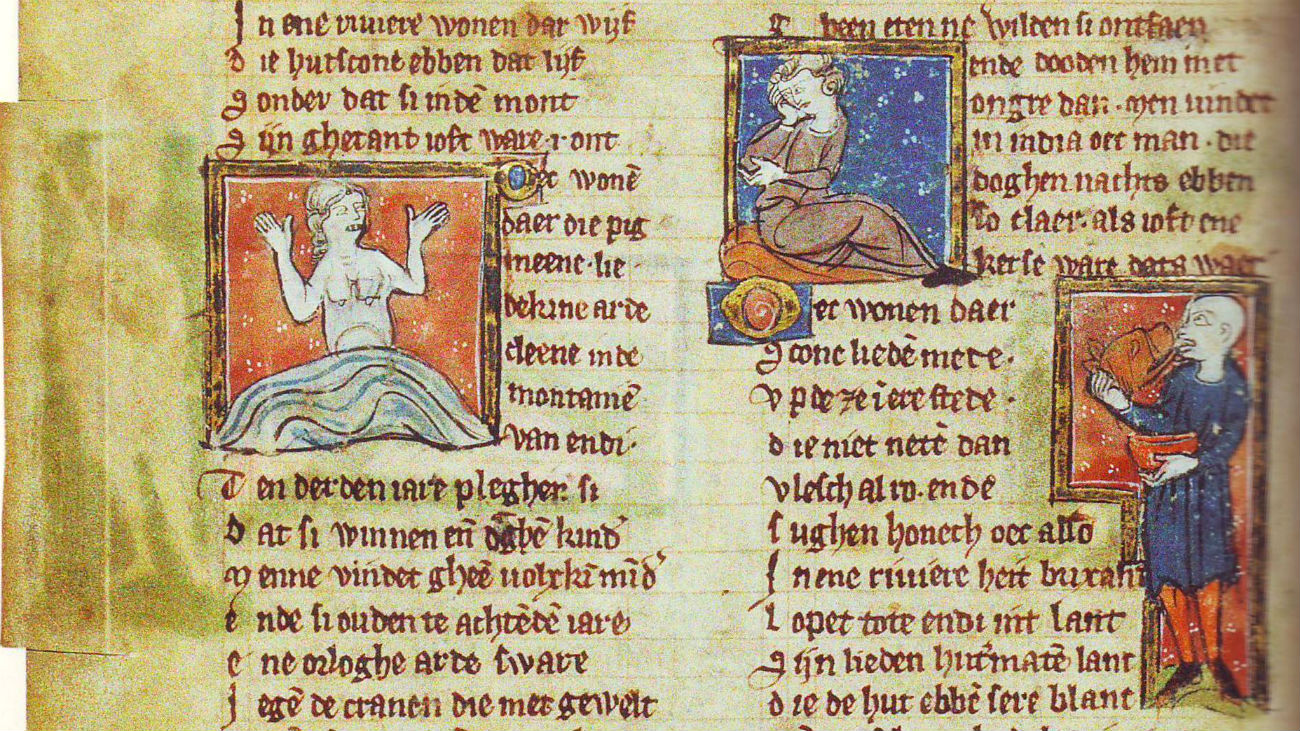 In ene riuiere wonen dar wijf
d ie hutscone ebben dat lijf
g onder dat si indē mont
g ijn ghetant ioft ware .i. ont
et wonē
daer die pig
meene lie
dekine arde
cleene inde
montaniē
van endi.
T en derden iare pleghen si
d at si winnen eñ kind'
m enne vindet gheē volxkī mīd'
e nde si ouden te achtēdē iare
e ne orloghe arde sware
J egē de cranen die met gewelt
been eten ne wilden si ontfaen
ende dooden hem met
ongre dan. Men vindet
in india oec man. die
doghen nachts ebben
so claer. als ioft ene
kerse ware data waer
et wonen daer
g cone liedē mete.
v p de zeiere stede.
d ie niet netē dan
vlesch al ro. ende
s ughen honech oec also
I n ene riuiere heit brixam
L opet tote endi int lant
g ijn lieden hutmatē lant
d ie de hut ebbē sere blanc